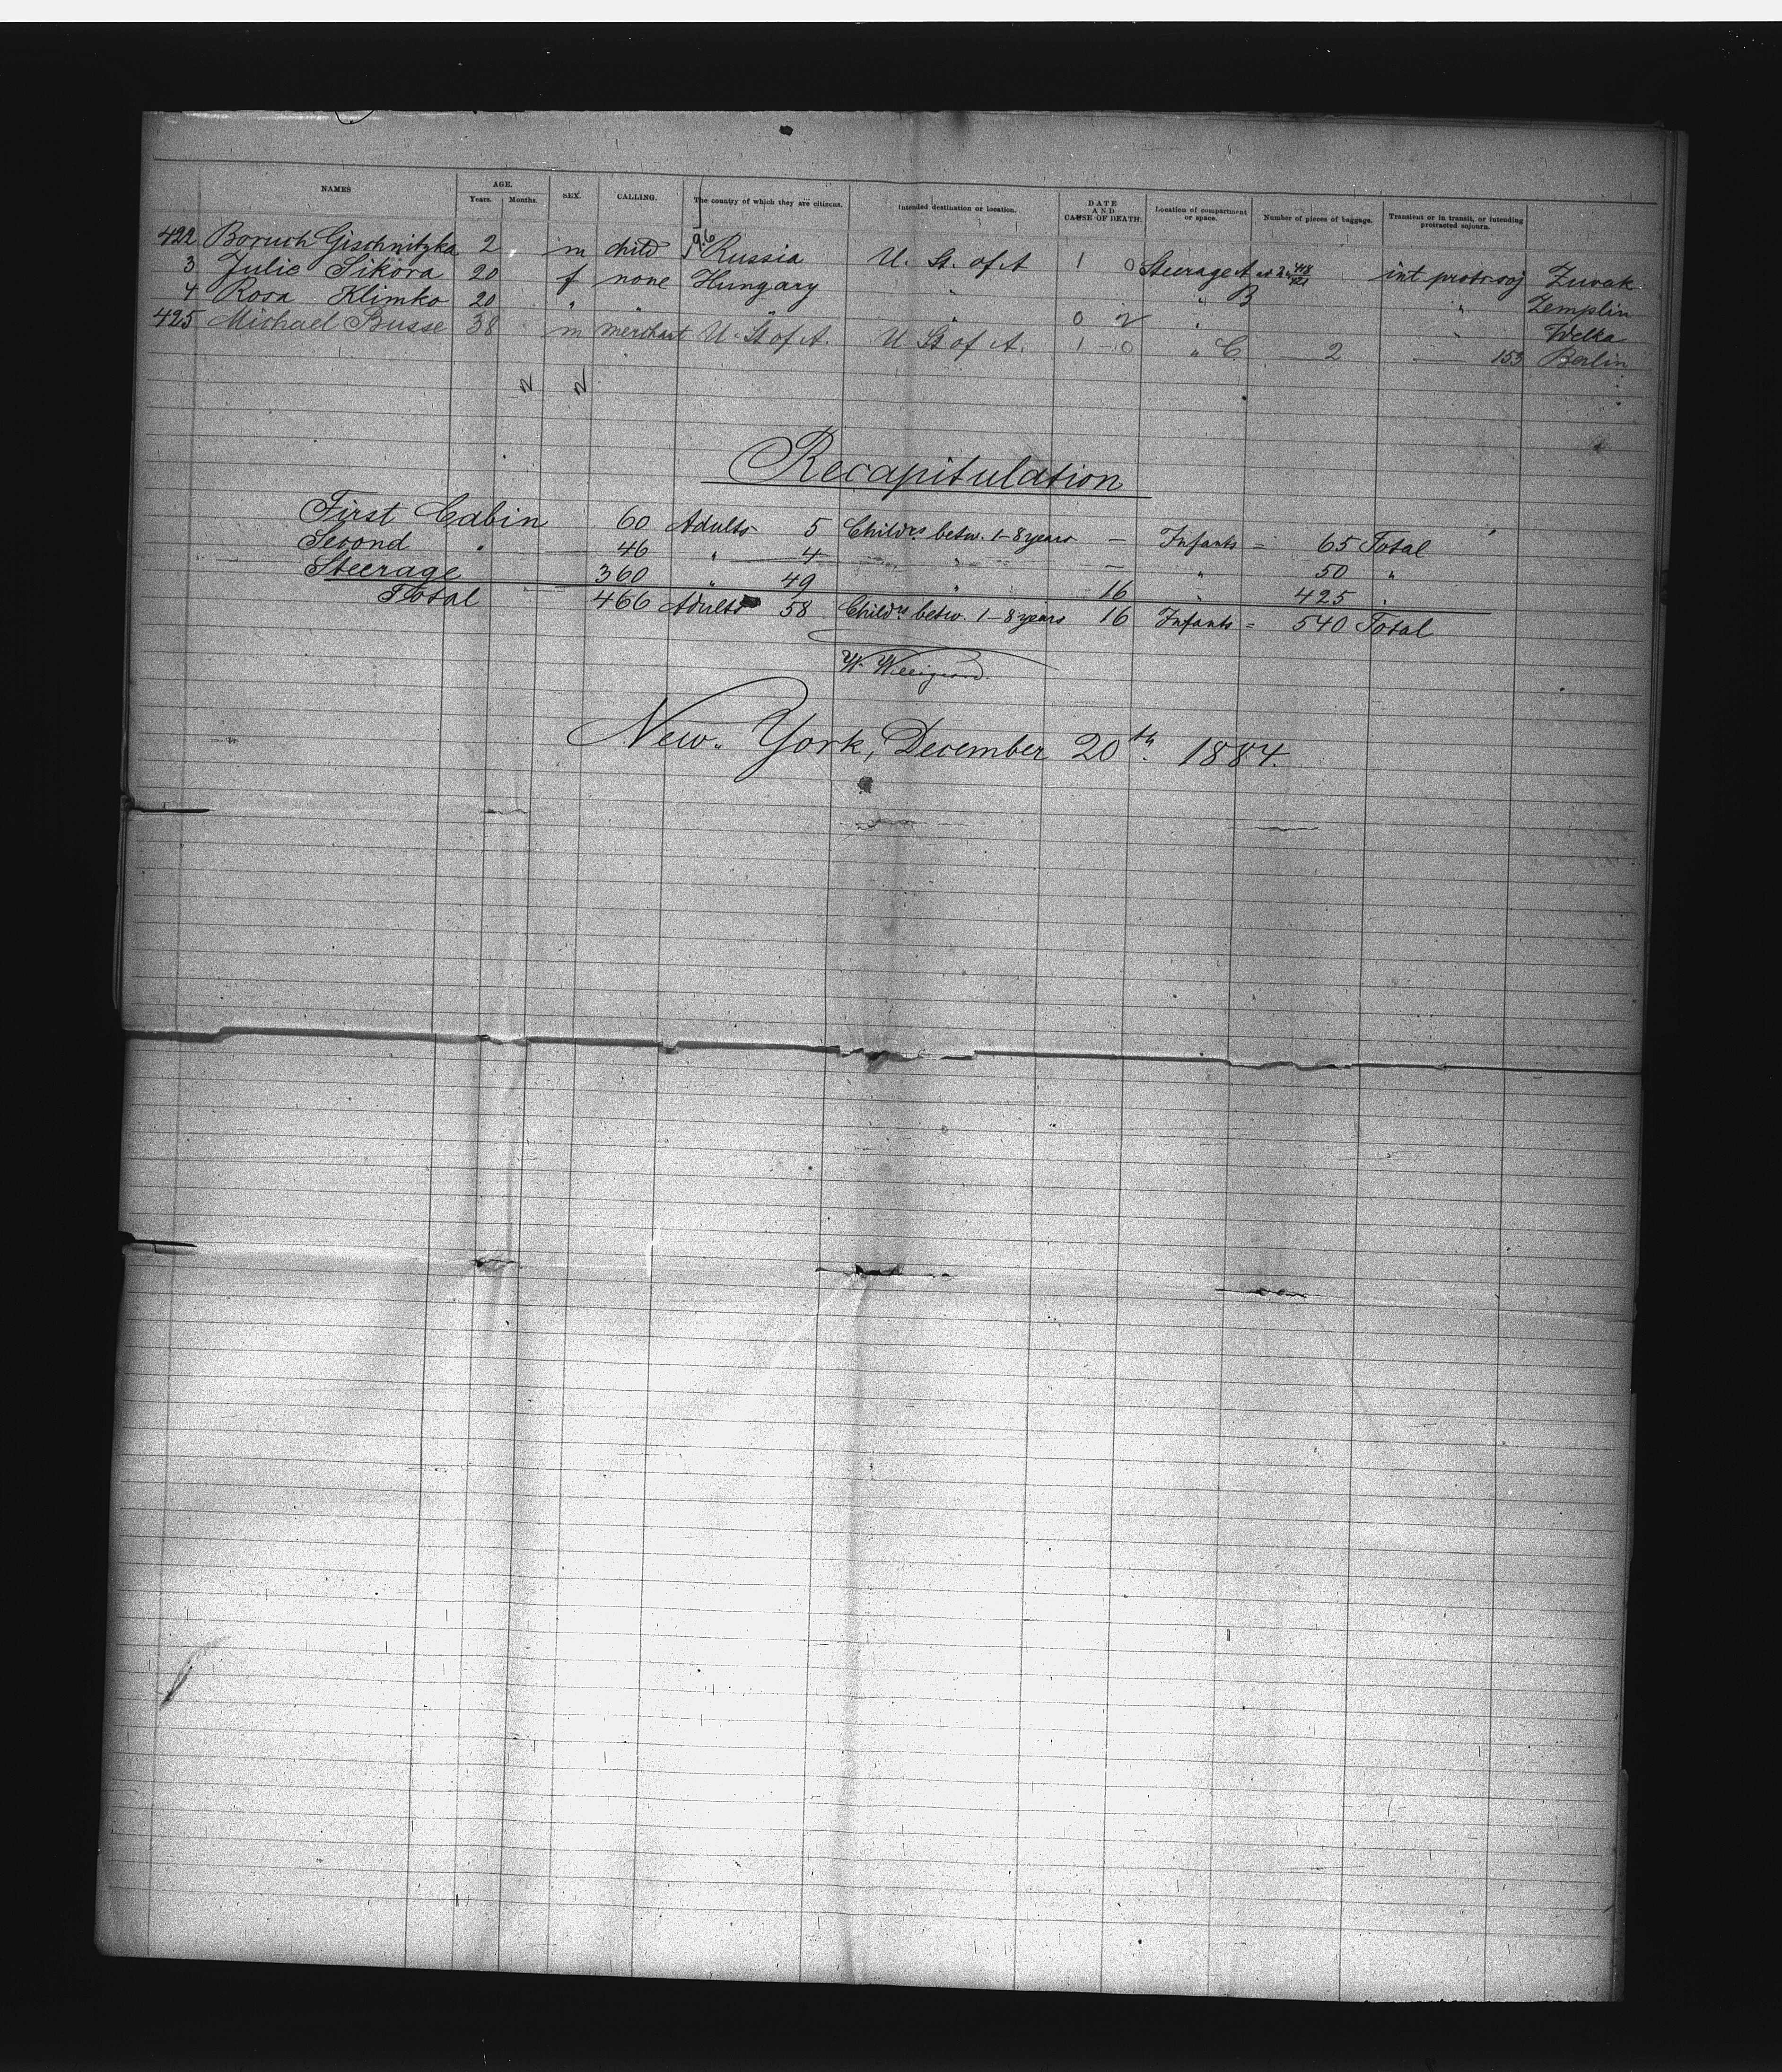 NAMES AGE. Years. Months. SEX. CALLING. The country of which they are citizens. Intended destination or location. DATE AND CAUSE OF DEATH. Location of compartment or space. Number of pieces of baggage. Transient or in transit, or intending protracted sojourn.
422 Boruch Gischnitzka 2 m child Russia U. St. of A 1 0 Steerage A int protr soj Zuvak
3 Julie Sikora 20 f none Hungary " " B " Zemplin
4 Rosa Klimko 20 " " " " 0 2 " " Welka
425 Michael Busse 38 m merchant U. St of A. U St of A. 1 0 " C. 2 — 153 Berlin
Recapitulation
First Cabin 60 Adults 5 Childrs betw. 1-8 years — Infants = 65 Total
Second " 46 " 4 " — " 50 "
Steerage 360 " 49 " 16 " 425 "
Total 466 Adults 58 Childrs betw. 1-8 years 16 Infants = 540 Total
W. Willigerod.
New York, December 20th. 1884.